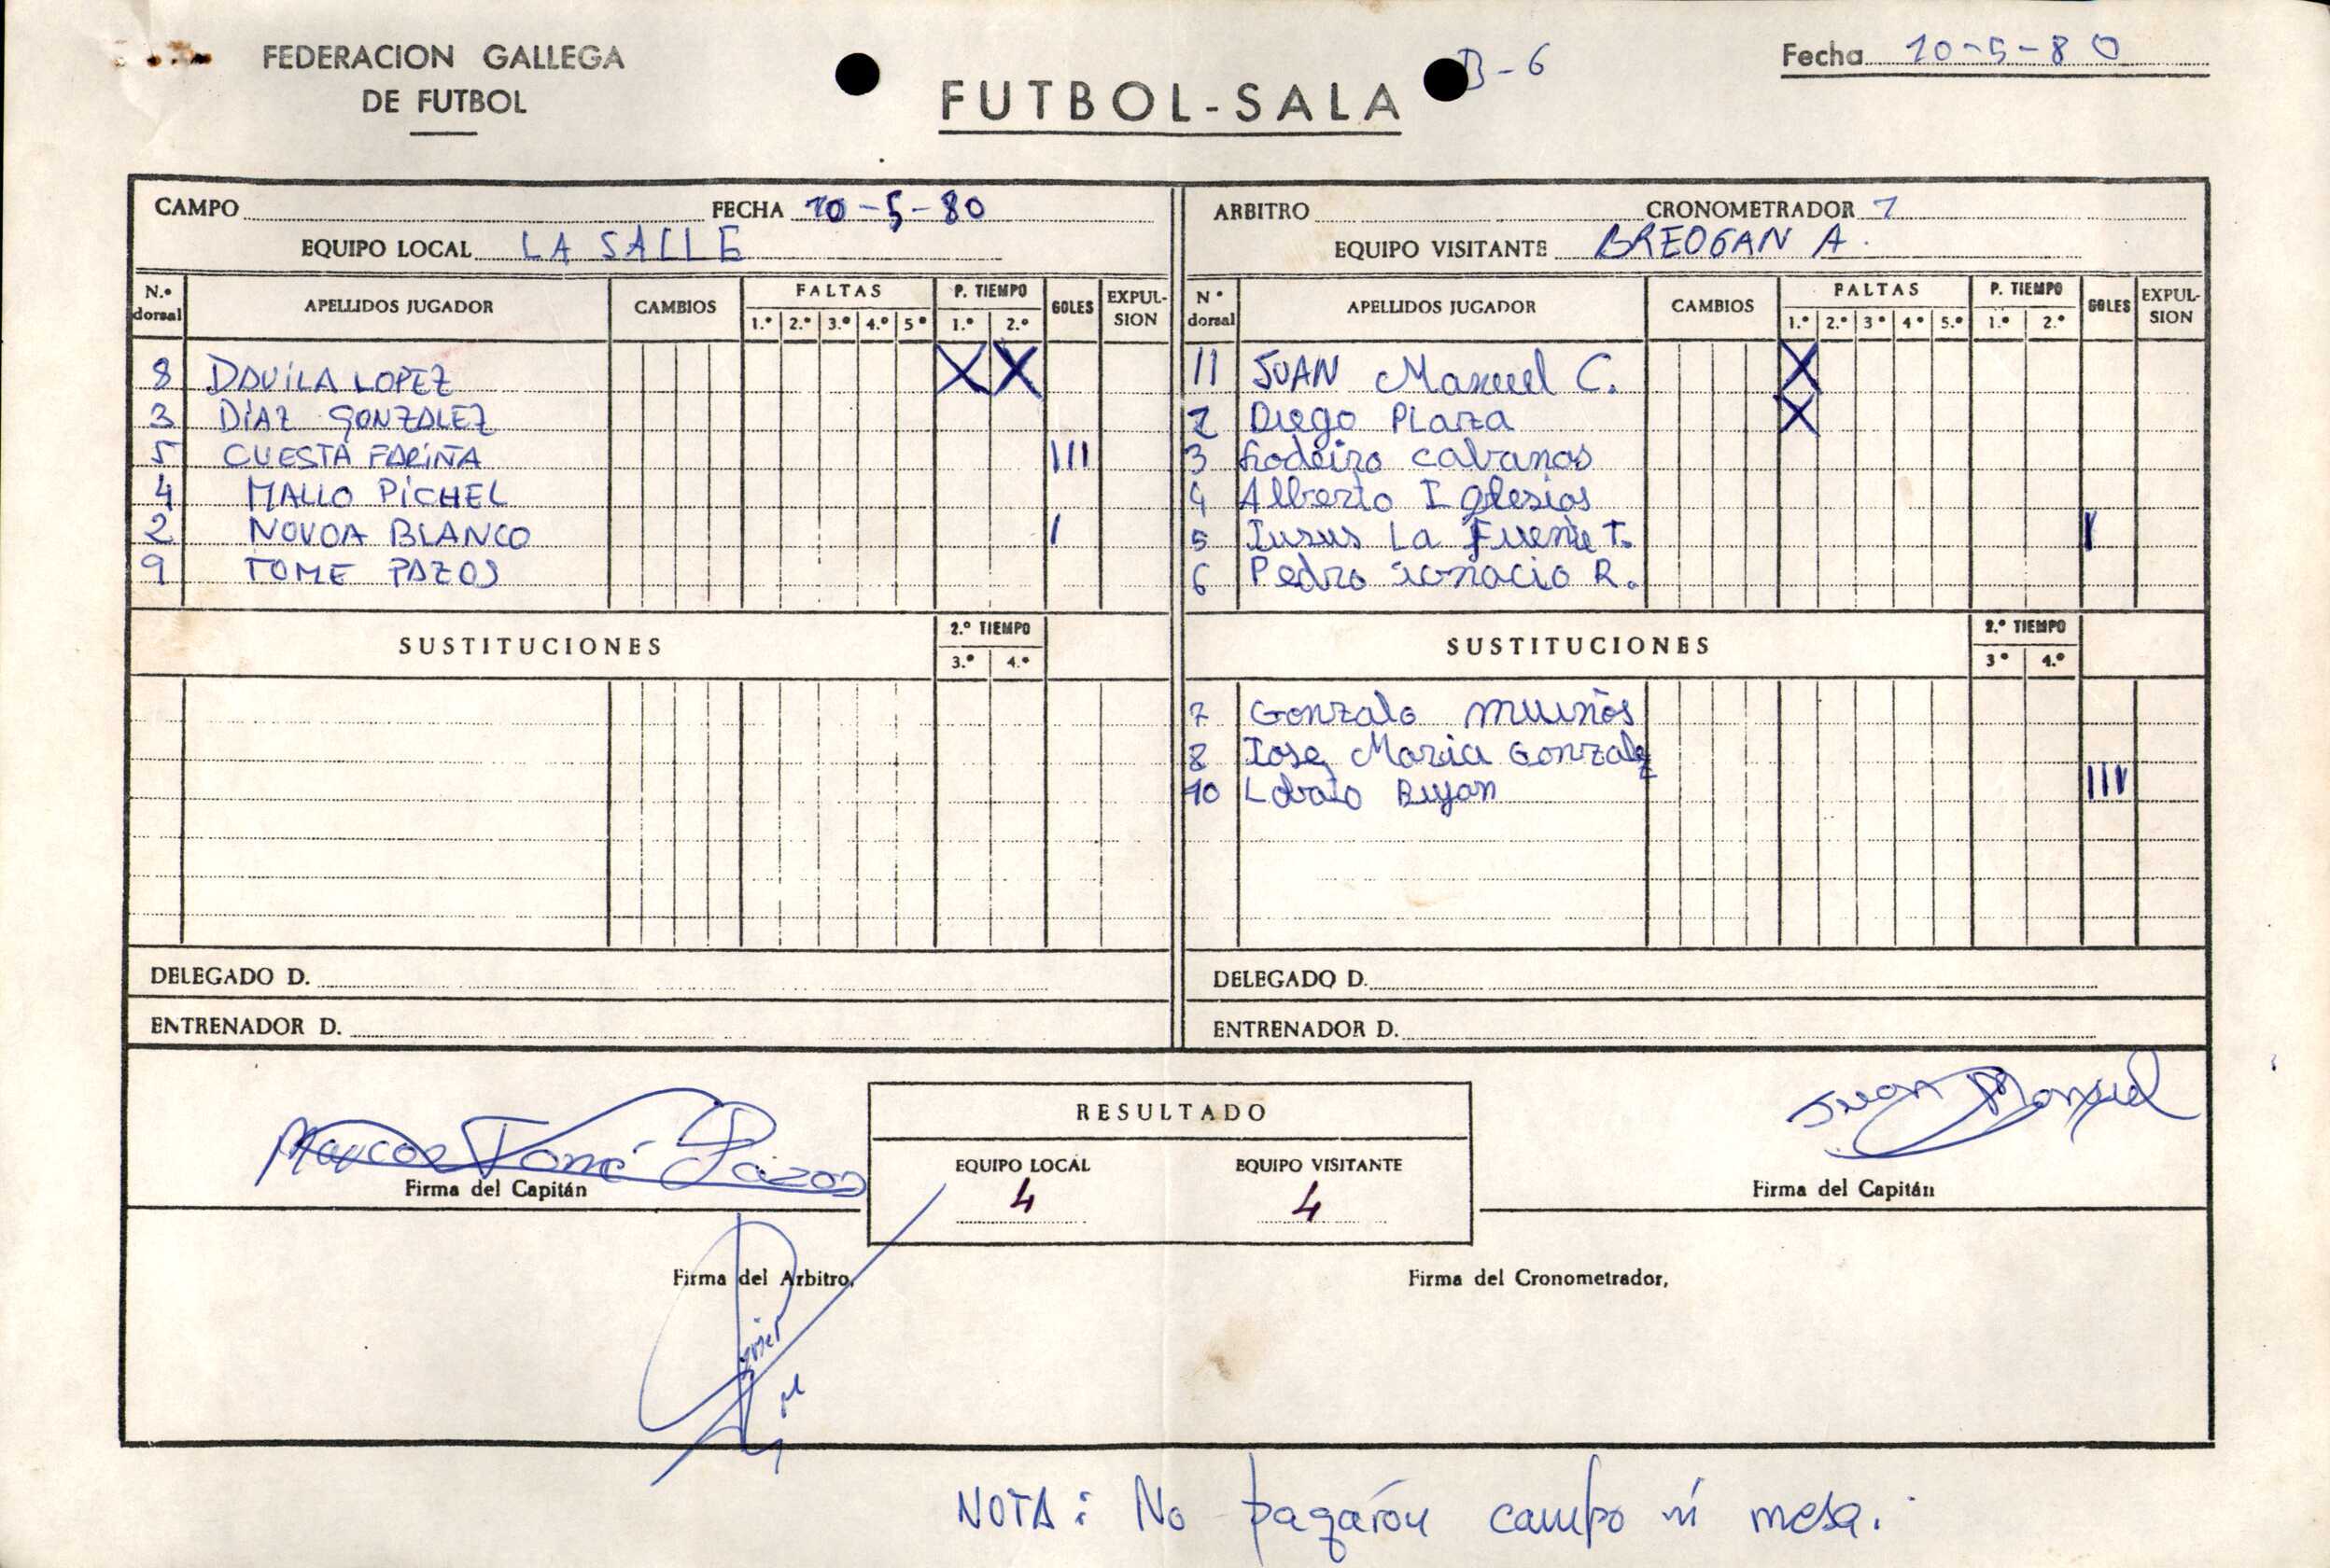 FEDERACION GALLEGA
DE FUTBOL
FUTBOL-SALA
B-6
Fecha 10-5-80
CAMPO FECHA 10-5-80
EQUIPO LOCAL LA SALLE
N.º dorsal APELLIDOS JUGADOR CAMBIOS FALTAS 1.º 2.º 3.º 4.º 5º P. TIEMPO 1.º 2.º GOLES EXPUL-SION
8 DAVILA LOPEZ X X
3 DIAZ GONZALEZ
5 CUESTA FARIÑA III
4 MALLO PICHEL
2 NOVOA BLANCO I
9 TOME PAZOS
SUSTITUCIONES 2.º TIEMPO 3.º 4.º
DELEGADO D.
ENTRENADOR D.
ARBITRO CRONOMETRADOR 1
EQUIPO VISITANTE BREOGAN A.
Nº dorsal APELLIDOS JUGADOR CAMBIOS FALTAS 1.º 2.º 3º 4º 5.º P. TIEMPO 1.º 2.º GOLES EXPUL-SION
11 JUAN Manuel C. X
2 Diego PLaza X
3 Rodeiro cabanas
4 Alberto Iglesias
5 La Fuente T. I
6 Pedro Ignacio R.
SUSTITUCIONES 2.º TIEMPO 3º 4.º
7 Gonzalo muiños
8 Jose Maria Gonzalez
10 Lobato III
DELEGADO D.
ENTRENADOR D.
Marcos Tomé Pazos
Firma del Capitán
RESULTADO
EQUIPO LOCAL EQUIPO VISITANTE
4 4
Juan Manuel
Firma del Capitán
Firma del Arbitro,
Firma del Cronometrador,
NOTA: No pagarón campo ni mesa.